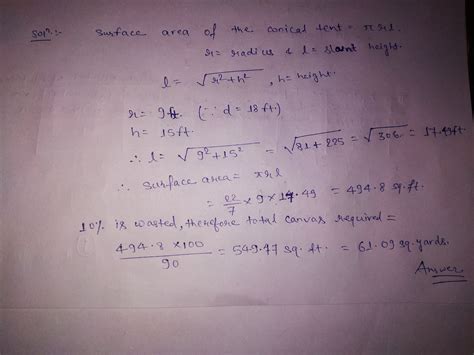 Solⁿ:- Surface area of the conical tent = πrl.
r = radius & l = slant height.
l = √r²+h² , h = height.
r = 9ft. (∵ d = 18ft.)
h = 15ft.
∴ l = √9²+15² = √81+225 = √306 = 17.49ft.
∴ surface area = πrl
= 22/7 × 9 × 17.49 = 494.8 sq.ft.
10% is wasted, therefore total canvas required =
494.8 × 100 / 90 = 549.77 sq. ft. = 61.09 sq. yards.
Answer